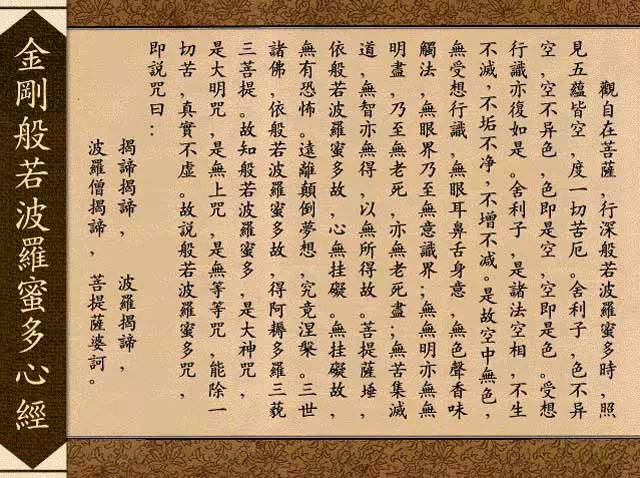 金剛般若波羅蜜多心經
觀自在菩薩，行深般若波羅蜜多時，照
見五蘊皆空，度一切苦厄。舍利子，色不异
空，空不异色，色即是空，空即是色。受想
行識亦復如是。舍利子，是諸法空相，不生
不滅，不垢不净，不增不減。是故空中無色，
無受想行識，無眼耳鼻舌身意，無色聲香味
觸法，無眼界乃至無意識界；無無明亦無無
明盡，乃至無老死，亦無老死盡；無苦集滅
道，無智亦無得，以無所得故。菩提薩埵，
依般若波羅蜜多故，心無挂礙。無挂礙故，
無有恐怖。遠離顛倒夢想，究竟涅槃。三世
諸佛，依般若波羅蜜多故，得阿耨多羅三藐
三菩提。故知般若波羅蜜多，是大神咒，
是大明咒，是無上咒，是無等等咒，能除一
切苦，真實不虛。故説般若波羅蜜多咒，
即説咒曰：
揭諦揭諦， 波羅揭諦，
波羅僧揭諦， 菩提薩婆訶。